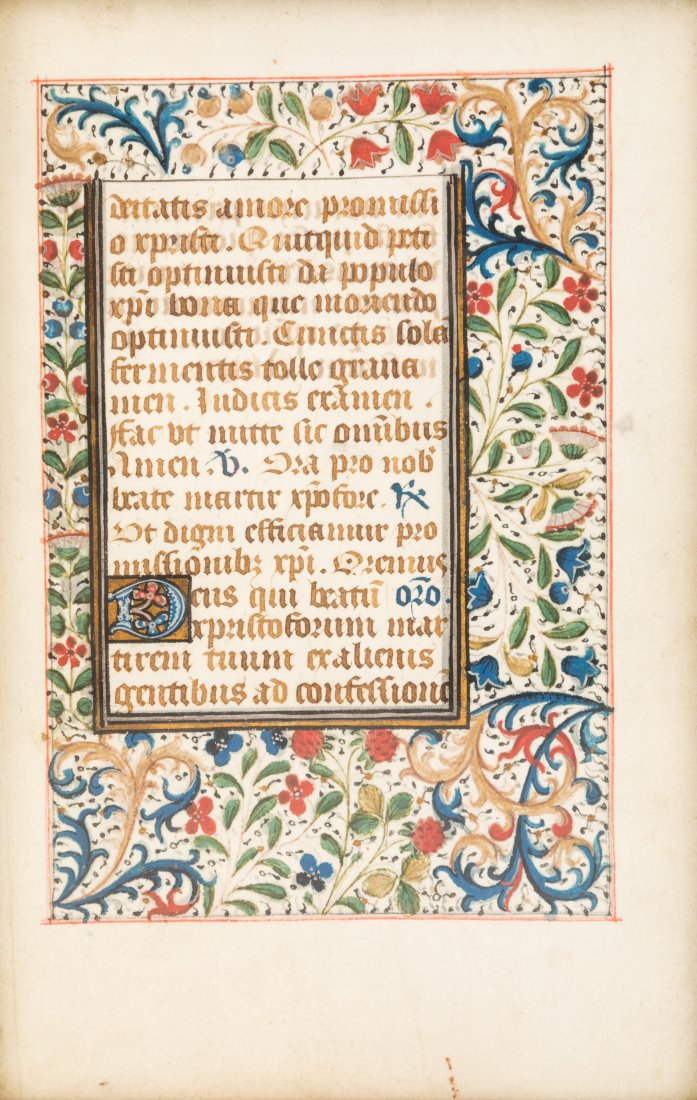 deitatis amore promissi
o xpriste. Quitquid peti
sti optinuisti da populo
xpi bona que moriendo
optinuisti. Cunctis sola
fer mentis tolle graua
men. Iudicis examen.
Fac vt mitte sic omibus
Amen V. Ora pro nob
beate martir xpofore. R
Vt digni efficiamur pro
missionibz xpi. Oremus
Deus qui beatū orō.
xpristoforum mar
tirem tuum ex alienis
gentibus ad confessionē